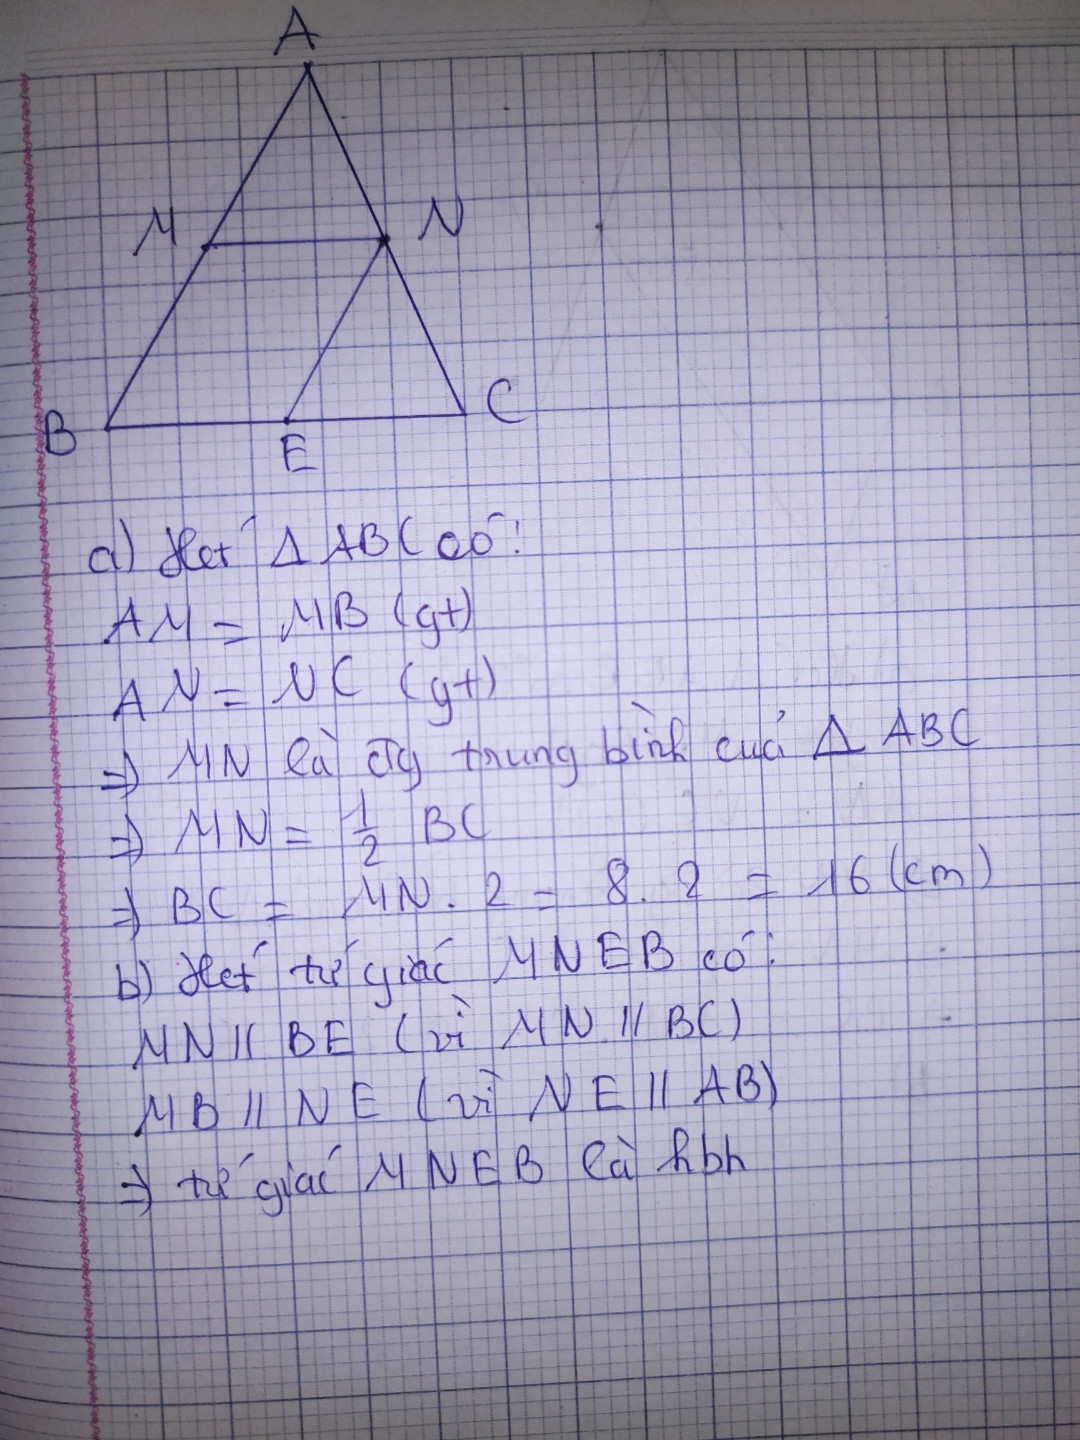 A
M N
B E C
a) Xét Δ ABC có:
AM = MB (gt)
AN = NC (gt)
=> MN là đg trung bình của Δ ABC
=> MN = 1/2 BC
=> BC = MN. 2 = 8. 2 = 16 (cm)
b) Xét tứ giác MNEB có:
MN // BE (vì MN // BC)
MB // NE (vì NE // AB)
=> tứ giác MNEB là hbh